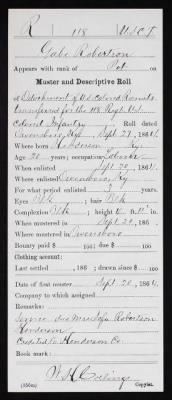 R | 118 | U.S.C.T.
Gabe Robertson
Appears with rank of Pvt. on
Muster and Descriptive Roll
of Detachment of U.S. Colored Recruits
transferred for the 118 Regt. U.S.
Colored Infantry. Roll dated
Owensboro, Ky. Sept 27, 1864.
Where born Henderson Ky.
Age 20 years; occupation Laborer
When enlisted Sept 20, 1864.
Where enlisted Owensboro, Ky.
For what period enlisted 3 years.
Eyes Blk; hair Blk
Complexion Blk; height ft. in.
When mustered in Sept 20, 1864.
Where mustered in Owensboro
Bounty paid $ 100; due $ 100
Clothing account:
Last settled , 186 ; drawn since $ 100
Date of first muster Sept 20, 1864.
Company to which assigned
Remarks:
Service due Mrs Robertson
Henderson
Credited to Henderson Co.
Book mark:
(356m) Copyist.